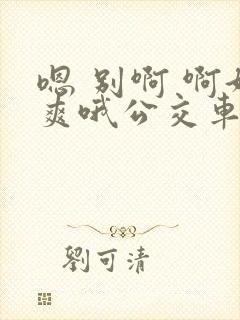 嗯 别啊 啊好
爽哦公交車
劉可清